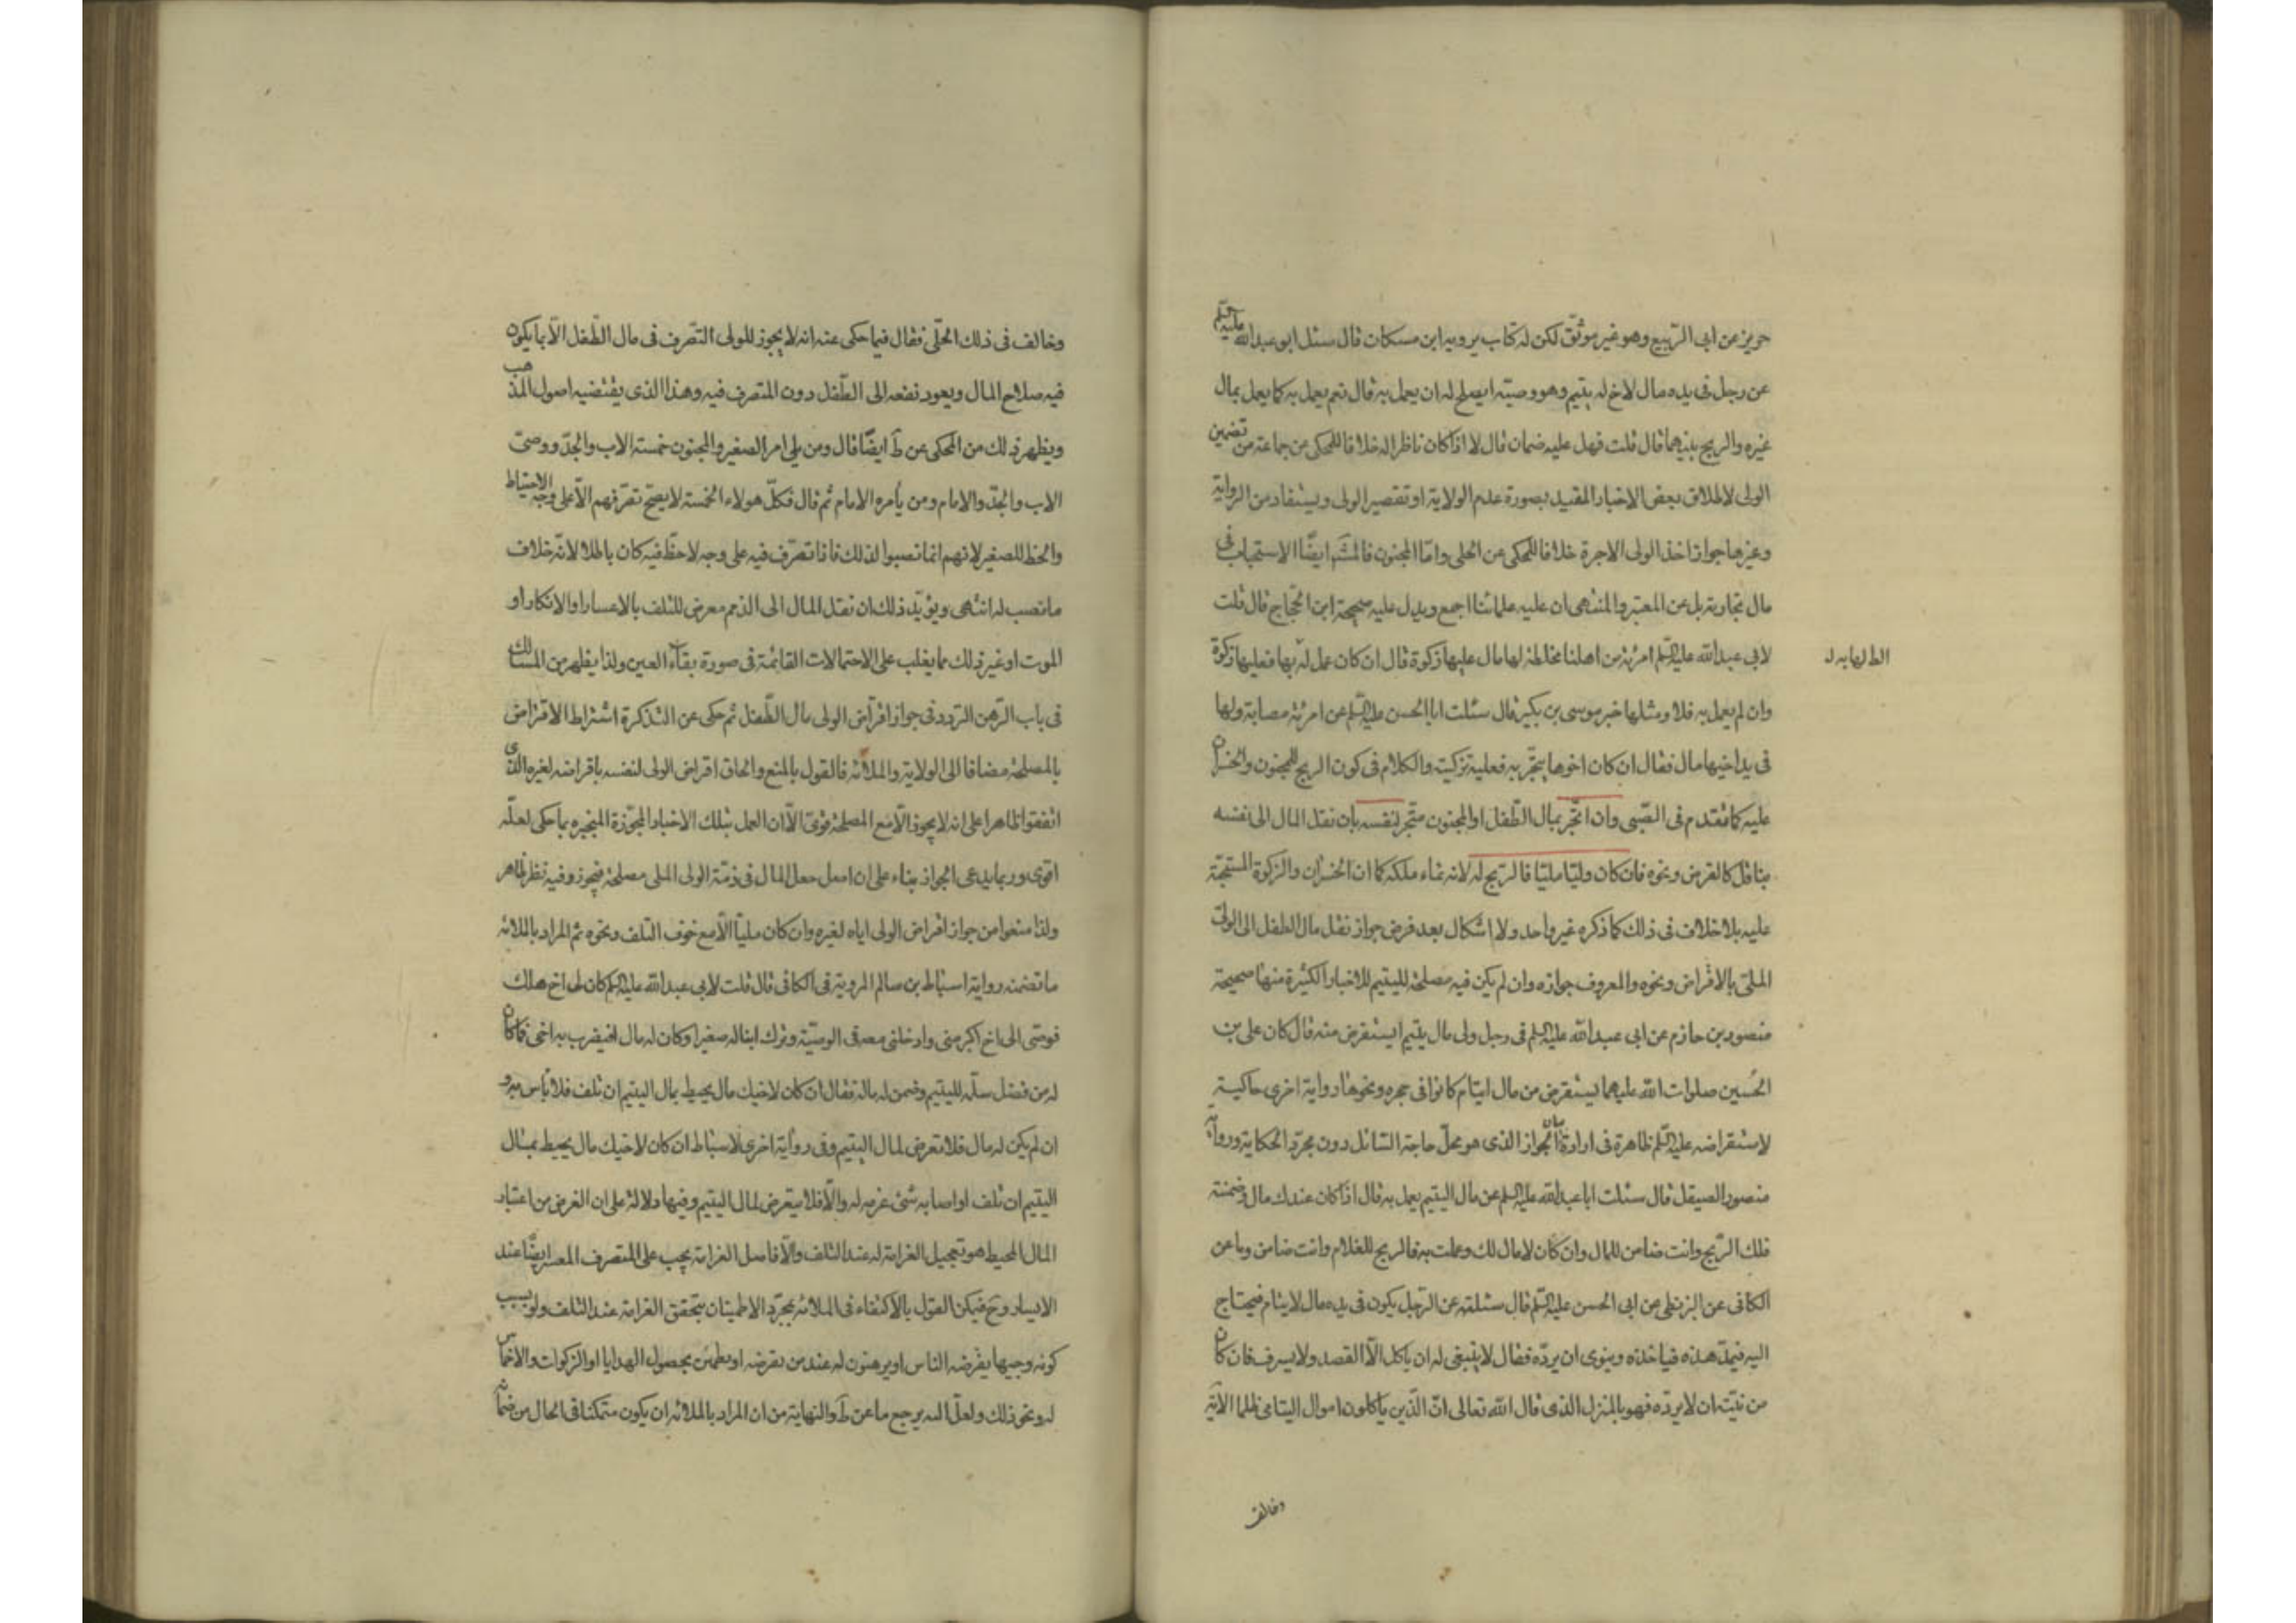 حريز عن ابى الرّبيع وهو غير موثّق لكن له كتاب يرويه ابن مسكان قال سئل ابو عبدالله عليه السلم
عن رجل فى يده مال لاخ له يتيم وهو وصيّه ايصلح له ان يعمل به قال نعم يعمل به كما يعمل بمال
غيره والربح بينهما قال قلت فهل عليه ضمان قال لا اذا كان ناظرا له خلافا للمحكى عن جماعة من تضمين
الولى لاطلاق بعض الاخبار المقيد بصورة عدم الولاية او تقصير الولى ويستفاد من الرواية
وغيرها جواز اخذ الولى الاجرة خلافا للمحكى عن الحلى وامّا المجنون فالمشَ ايضًا الاستحباب فى
مال تجارته بل عن المعتبر والمنتهى ان عليه علمائنا اجمع ويدل عليه صحيحة ابن الحجاج قال قلت
لابى عبدالله عليه السّلم امرئة من اهلنا مختلطة لها مال عليها زكوة قال ان كان عمل به فعليها زكوة
الط لها به لـ
وان لم يعمل به فلا ومثلها خبر موسى بن بكير قال سئلت ابا الحسن عليه السلم عن امرئة مصابة ولها
فى يد اخيها مال فقال ان كان اخوها يتّجر به فعليه تزكيته والكلام فى كون الربح للمجنون والخسران
عليه كما تقدم فى الصّبى وان اتّجر بمال الطّفل او المجنون متّجر لنفسه بان نقل المال الى نفسه
بناقل كالقرض ونحوه فان كان وليّا مليّا فالرّبح له لانه نماء ملكه كما ان الخسران والزكوة المستحبّة
عليه بلا خلاف فى ذلك كما ذكره غير واحد ولا اشكال بعد فرض جواز نقل مال الطفل الى الولىّ
الملىّ بالاقراض ونحوه والمعروف جوازه وان لم يكن فيه مصلحة لليتيم للاخبار الكثيرة منها صحيحة
منصور بن حازم عن ابى عبدالله عليه السلم فى رجل ولى مال يتيم ايستقرض منه قال كان على بن
الحُسين صلوات الله عليهما يستقرض من مال ايتام كانوا فى حجره ونحوها رواية اخرى حاكية
لاستقراضه عليه السّلم ظاهرة فى ارادة بيان الجواز الذى هو محلّ حاجة السّائل دون مجرّد الحكاية ورواية
منصور الصيقل قال سئلت ابا عبدالله عليه السلم عن مال اليتيم يعمل به قال اذا كان عندك مال وضمنته
فلك الرّبح وانت ضامن للمال وان كان لا مال لك وعملت به فالربح للغلام وانت ضامن وما عن
الكافى عن البزنطى عن ابى الحسن عليه السّلم قال سئلته عن الرّجل يكون فى يده مال لايتام فيحتاج
اليه فيمدّ هذه فياخذه وينوى ان يردّه فقال لا ينبغى له ان ياكل الاّ القصد ولا يسرف فان كان
من نيّته ان لا يردّه فهو بالمنزل الذى قال الله تعالى انّ الّذين ياكلون اموال اليتامى ظلما الآية
وخالف
وخالف فى ذلك الحلّى فقال فيما حكى عنه انه لا يجوز للولى التصّرف فى مال الطّفل الاّ بما يكون
فيه صلاح المال ويعود نفعه الى الطّفل دون المتصرف فيه وهذا الذى يقتضيه اصول المذهب
ويظهر ذلك من المحكى عن ط ايضًا قال ومن يلى امر الصغير والمجنون خمسة الاب والجدّ ووصىّ
الاب والجدّ والامام ومن يأمره الامام ثم قال فكلّ هولاء الخمسة لا يصحّ تصرّفهم الاّ على وجه الاحتياط
والحظ للصغير لانهم انما نصبوا لذلك فاذا تصرّف فيه على وجه لا حظّ فيه كان باطلا لانّه خلاف
ما نصب له انتهى ويؤيّد ذلك ان نقل المال الى الذمم معرض للتلف بالاعسار او الانكار او
الموت او غير ذلك مما يغلب على الاحتمالات القائمة فى صورة بقاء العين ولذا يظهر من المسالك
فى باب الرّهن التردد فى جواز اقراض الولى مال الطّفل ثم حكى عن التذكرة اشتراط الاقتراض
بالمصلحة مضافا الى الولاية والملائة فالقول بالمنع والحاق اقراض الولى لنفسه باقراضه لغيره الذى
اتفقوا ظاهرا على انه لا يجوز الاّ مع المصلحة قوىّ الاّ ان العمل بتلك الاخبار المجوّزة المنجبره بما حكى لعلّه
اقوى وربما يدعى الجواز بناء على ان اصل جعل المال فى ذمّة الولى الملى مصلحة فيجوز وفيه نظر ظاهر
ولذا منعوا من جواز اقراض الولى اياه لغيره وان كان مليّا الاّ مع خوف التلف ونحوه ثم المراد بالملائة
ما تضمنه رواية اسباط بن سالم المروية فى الكافى قال قلت لابى عبدالله عليه السلم كان لى اخ هلك
فوصّى الى اخ اكبر منى وادخلنى معه فى الوصيّة وترك ابنا له صغيرا وكان له مال افيضرب به اخى فما كان
له من فضل سلّمه لليتيم وضمن له ماله فقال ان كان لاخيك مال يحيط بمال اليتيم ان تلف فلا بأس به و
ان لم يكن له مال فلا تعرض لمال اليتيم وفى رواية اخرى لاسباط ان كان لاخيك مال يحيط بمال
اليتيم ان تلف او اصابه شئ غرمه له والاّ فلا يتعرض لمال اليتيم وفيها دلالة على ان الغرض من اعتبار
المال المحيط هو تعجيل الغرامة له عند التلف والاّ فاصل الغرامة يجب على المتصرف المعسر ايضًا عند
الايسار وحَ فيمكن القول بالاكتفاء فى الملائة بمجرّد الاطمينان بتحقق الغرامة عند التلف ولو بسبب
كونه وجيها يقرضه الناس او يرهنون له عند من يقرضه او يطمئن بحصول الهدايا او الزكوات والاخماس
له ونحو ذلك ولعلّ اليه يرجع ما عن ط والنهاية من ان المراد بالملائة ان يكون متمكنا فى الحال من ضمانه